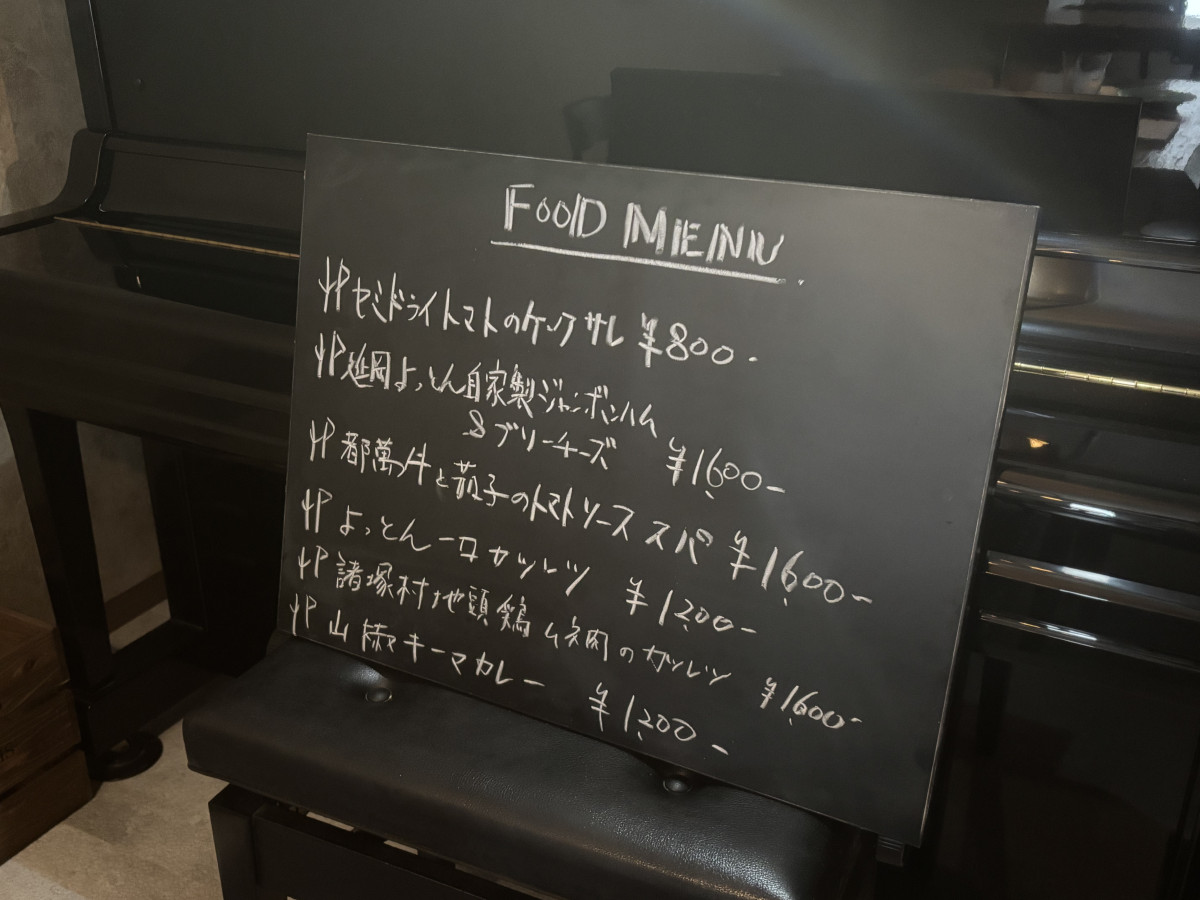 FOOD MENU
セミドライトマトのケークサレ ¥800-
延岡よっとん自家製ジャンボンハム
&ブリーチーズ ¥1,600-
都萬牛と茄子のトマトソーススパ ¥1,600-
よっとん一口カツレツ ¥1,200-
諸塚村地頭鶏ムネ肉のカツレツ ¥1,600-
山椒キーマカレー ¥1,200-